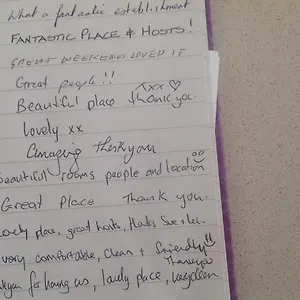 What a fantastic establishment
FANTASTIC PLACE & HOSTS!
GREAT WEEKEND LOVED IT
Great people!!
xx ♡
Beautiful place thank you.
lovely xx
Amazing thankyou
beautiful rooms people and location
Great Place Thank you.
Lovely place, great hosts, thanks Sue +
very comfortable, clean + friendly!!
Thankyou
for having us, lovely place,